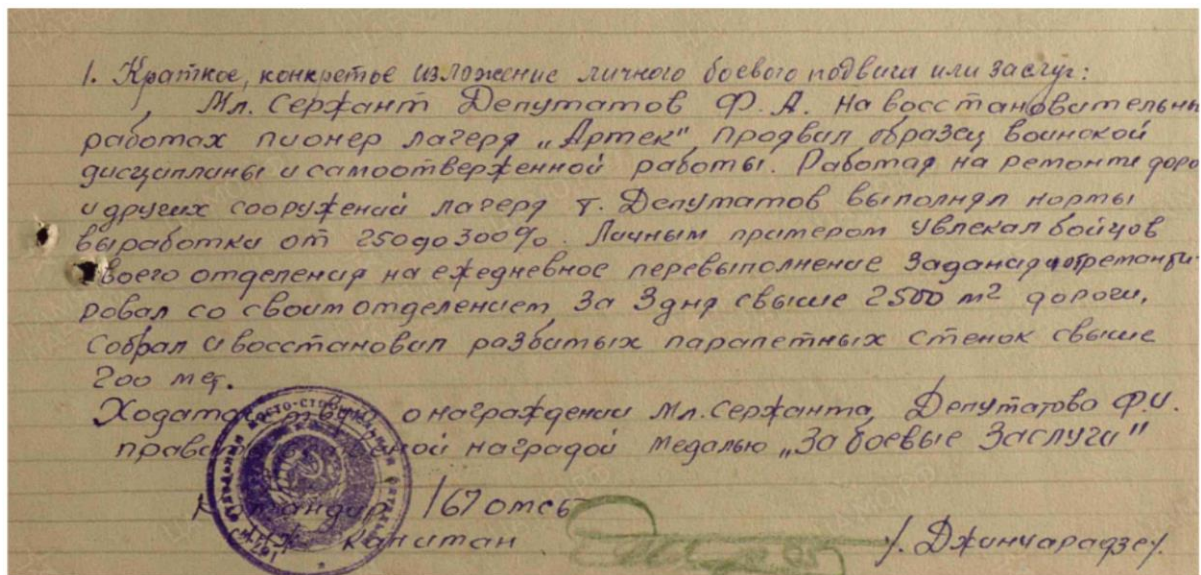 1. Краткое, конкретое изложение личного боевого подвига или заслуг:
Мл. Сержант Депутатов Ф. А. на восстановительны
работах пионер лагеря „Артек" проявил образец воинской
дисциплины и самоотверженной работы. Работая на ремонте доро
и других сооружений лагеря т. Депутатов выполнял нормы
выработки от 250 до 300%. Личным примером увлекал бойцов
своего отделения на ежедневное перевыполнение задания, отремонти-
ровал со своим отделением за 3 дня свыше 2500 м² дороги,
собрал и восстановил разбитых парапетных стенок свыше
200 мет.
о награждении Мл. Сержанта, Депутатово Ф.И.
наградой медалью „За боевые Заслуги"
Командир 167 омсб
капитан /. Джинчарадзе/.